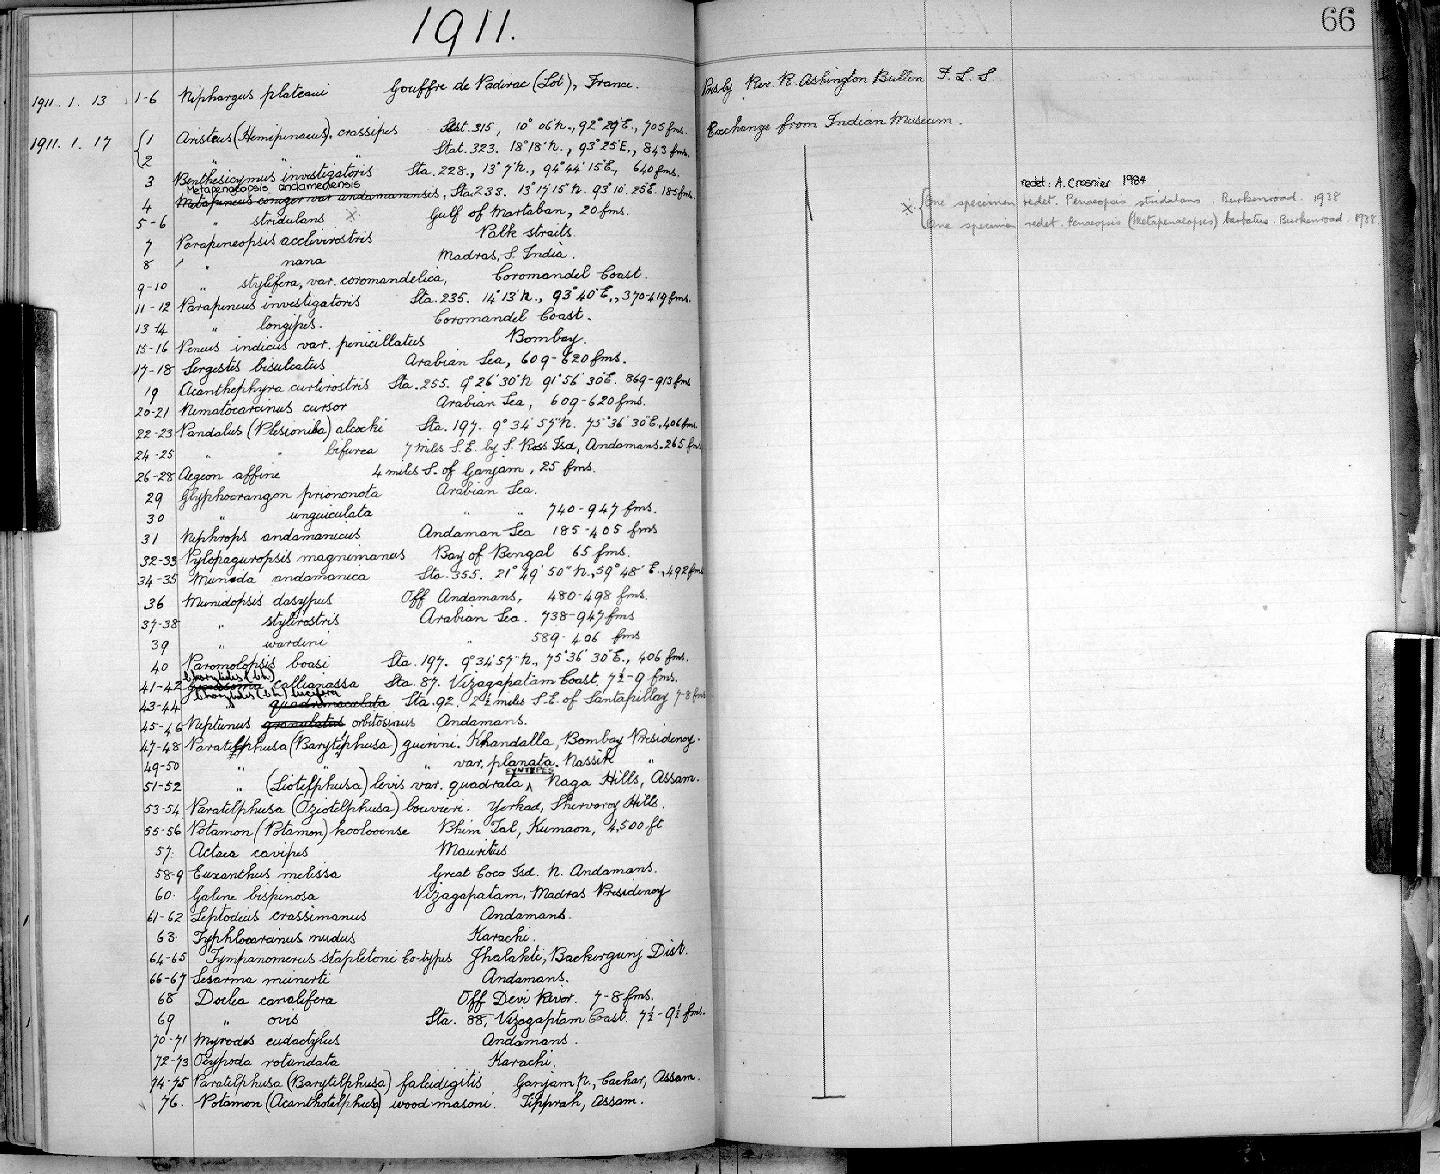 1911.
66
1911. 1. 13 1-6 Niphargus plateaui Gouffre de Padirac (Lot), France. Pres by Rev. R. Ashington Bullen F. L. S
1911. 1. 17 1 Aristeus (Hemipenaeus) crassipes Stat. 315, 10° 06' N., 92° 29' E., 705 fms. Exchange from Indian Museum.
2 " " " Stat. 323. 18° 18' N., 93° 25' E., 843 fms.
3 Benthesicymus investigatoris Sta. 228., 13° 7' N., 94° 44' 15" E., 640 fms.
Metapenaeopsis andamanensis redet. A. Crosnier 1984
4 Metapeneus coniger var andamanensis, Sta 233. 13° 17' 15" N. 93° 10' 25" E. 185 fms.
5-6 " stridulans × Gulf of Martaban, 20 fms. × One specimen redet. Penaeopsis stridulans. Burkenroad. 1938
One specimen redet. Penaeopsis (Metapenaeopsis) barbatus. Burkenroad. 1938
7 Parapeneopsis acclivirostris Palk straits.
8 " nana Madras, S. India.
9-10 " stylifera, var. coromandelica, Coromandel Coast.
11-12 Parapeneus investigatoris Sta. 235. 14° 13' N., 93° 40' E., 370-419 fms.
13-14 " longipes. Coromandel Coast.
15-16 Peneus indicus var. penicillatus Bombay.
17-18 Sergestes bisulcatus Arabian Sea, 609-620 fms.
19 Acanthephyra curtirostris Sta. 255. 9° 26' 30" N 91° 56' 30" E. 869-913 fms
20-21 Nematocarcinus cursor Arabian Sea, 609-620 fms.
22-23 Pandalus (Plesionika) alcocki Sta. 197. 9° 34' 57" N. 75° 36' 30" E., 406 fms.
24-25 " " bifurca 7 miles S.E. by S. Ross Isd, Andamans. 265 fms
26-28 Aegeon affine 4 miles S. of Ganjam, 25 fms.
29 Glyphocrangon priononota Arabian Sea.
30 " unguiculata " " 740-947 fms.
31 Nephrops andamanicus Andaman Sea 185-405 fms
32-33 Pylopaguropsis magnimanus Bay of Bengal 65 fms.
34-35 Munida andamanica Sta. 355. 21° 49' 50" N., 59° 48' E., 492 fms
36 Munidopsis dasypus Off Andamans, 480-498 fms.
37-38 " stylirostris Arabian Sea. 738-947 fms
39 " wardini " 589-406 fms
40 Paromolopsis boasi Sta. 197. 9° 34' 57" N., 75° 36' 30" E., 406 fms.
41-42 callianassa Sta. 87. Vizagapatam Coast, 7½-9 fms.
lucifera
43-44 quadrimaculata Sta. 92. 2½ miles S.E. of Santapillay 7-8 fms
45-46 Neptunus granulatus orbitosinus Andamans.
47-48 Paratelphusa (Barytelphusa) guerini. Khandalla, Bombay Presidency.
49-50 " " " var. planata. Nassik "
SYNTYPES
51-52 " (Liotelphusa) levis var. quadrata Naga Hills, Assam.
53-54 Paratelphusa (Oziotelphusa) bouvieri. Yerkad, Shevaroy Hills.
55-56 Potamon (Potamon) koolooense Bhim Tal, Kumaon, 4,500 ft
57. Actaea cavipes Mauritius
58-9 Euxanthus melissa Great Coco Isd. N. Andamans.
60. Galene bispinosa Vizagapatam, Madras Presidency
61-62 Leptodius crassimanus Andamans.
63 Typhlocarcinus nudus Karachi.
64-65 Tympanomerus stapletoni Co-types Jhalakti, Backergunj Dist.
66-67 Sesarma meinerti Andamans.
68 Doclea canalifera Off Devi River. 7-8 fms.
69 " ovis Sta. 88, Vizagaptam Coast. 7½-9½ fms.
70-71 Myrodes eudactylus Andamans.
72-73 Ocypoda rotundata Karachi.
74-75 Paratelphusa (Barytelphusa) falcidigitis Ganjam p., Cachar, Assam.
76. Potamon (Acanthotelphusa) wood masoni. Tipprah, Assam.